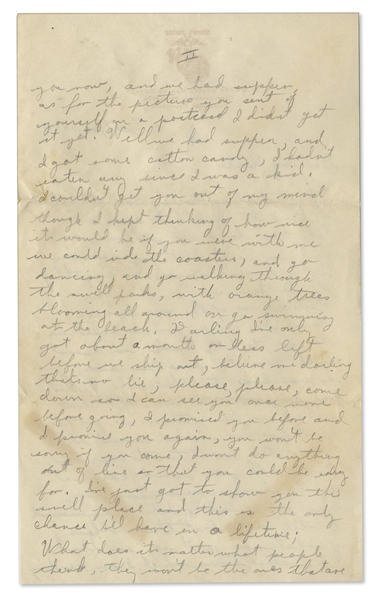 II
you now, and we had supper,
as for the picture you sent of
yourself on a postcard I didn't get
it yet. Well we had supper, and
I got some cotton candy, I hadn't
eaten any since I was a kid.
I couldn't get you out of my mind
though I kept thinking of how nice
it would be if you were with me
we could ride the coasters, and go
dancing, and go walking through
the swell parks, with orange trees
blooming all around or go swimming
at the beach. Darling I've only
got about a months or less left
before we ship out, believe me darling
thats no lie, please, please, come
down so I can see you once more
before going, I promised you before and
I promise you again, you won't be
sorry if you come, I won't do anything
out of line or that you could be sorry
for. I've just got to show you this
swell place and this is the only
chance I'll have in a lifetime;
What does it matter what people
think, they won't be the ones that are